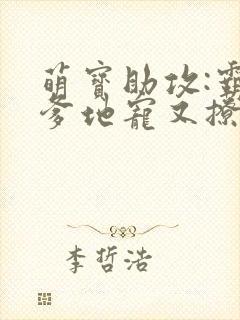 萌寶助攻:霸
爹地寵又撩
李哲浩